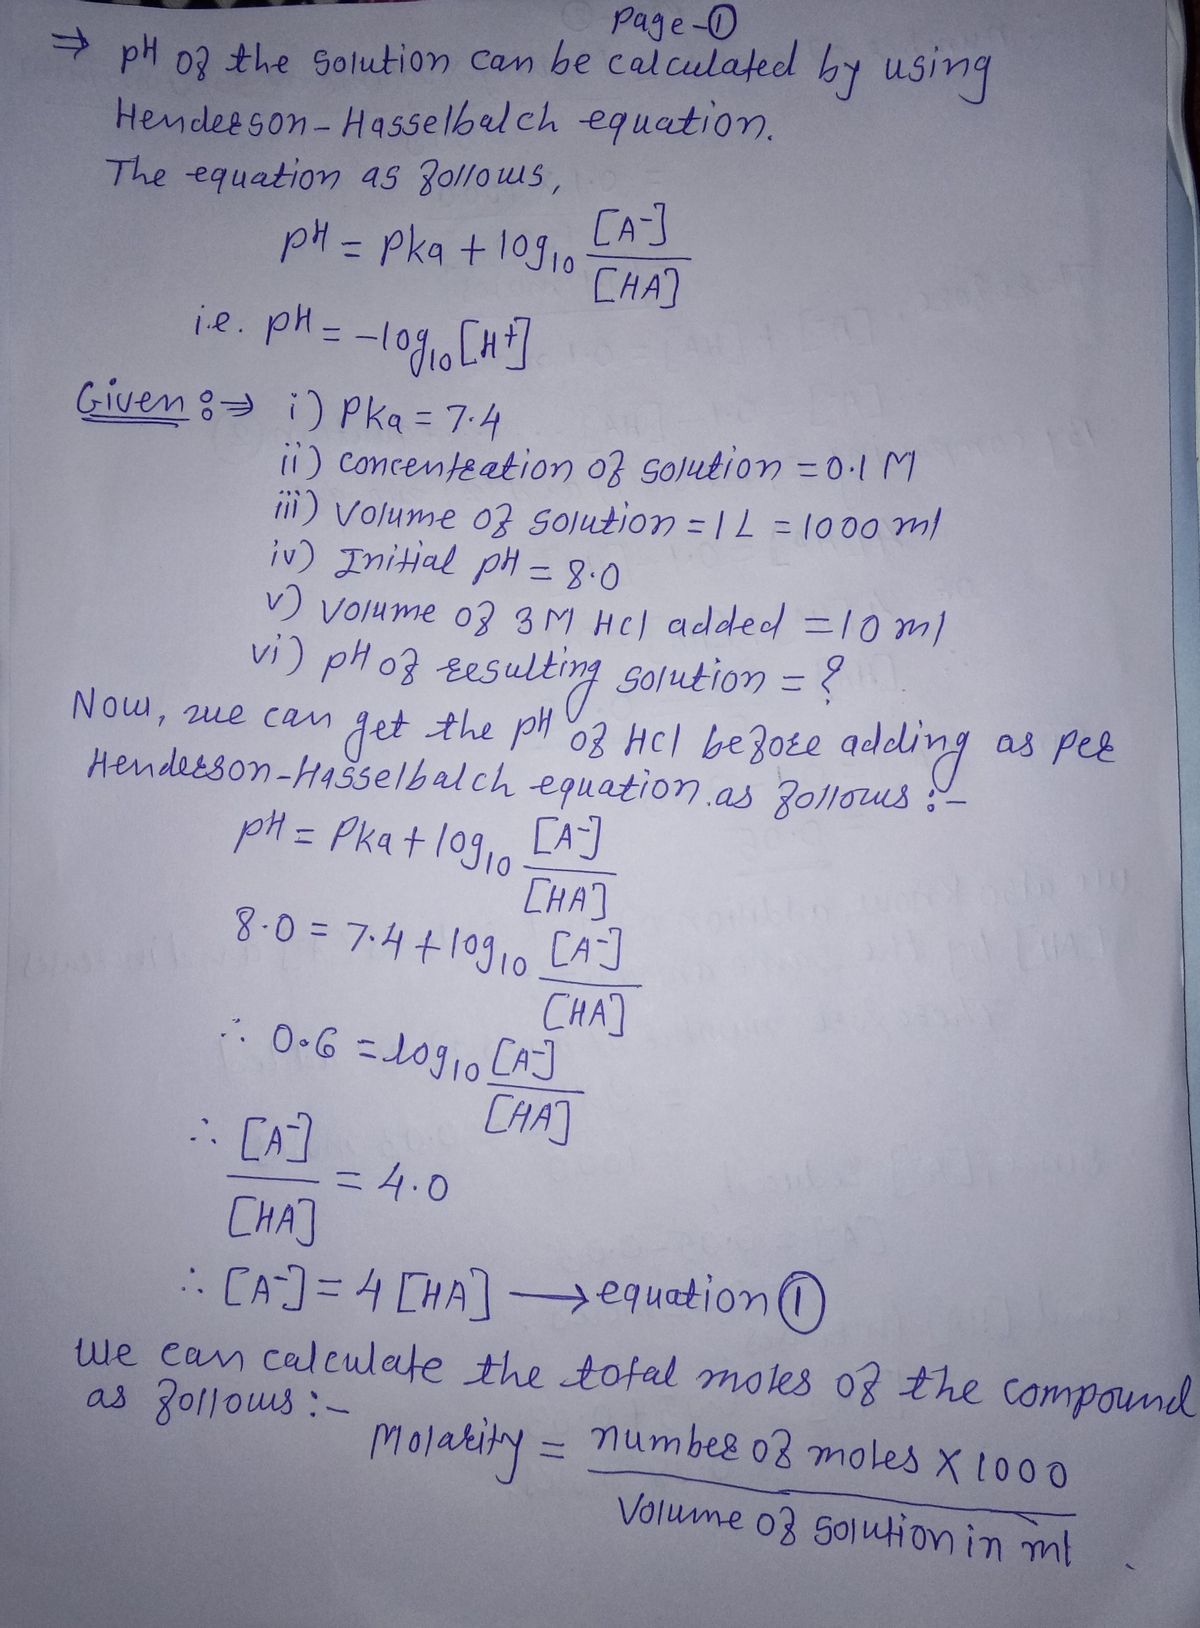 Page-①
⇒ pH of the solution can be calculated by using
Henderson-Hasselbalch equation.
The equation as follows,
pH = Pka + log10 [A-]/[HA]
i.e. pH = -log10 [H+]
Given :⇒ i) Pka = 7.4
ii) concentration of solution = 0.1 M
iii) Volume of solution = 1 L = 1000 ml
iv) Initial pH = 8.0
v) Volume of 3 M HCl added = 10 ml
vi) pH of resulting solution = ?
Now, we can get the pH of HCl before adding as per
Henderson-Hasselbalch equation.as follows :-
pH = Pka + log10 [A-]/[HA]
8.0 = 7.4 + log10 [A-]/[HA]
∴ 0.6 = log10 [A-]/[HA]
∴ [A-]/[HA] = 4.0
∴ [A-] = 4 [HA] → equation ①
We can calculate the total moles of the compound
as follows :-
Molarity = number of moles X 1000 / Volume of solution in ml